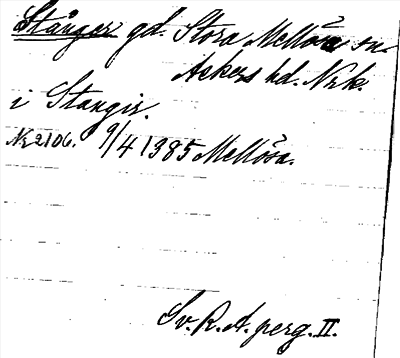 Stånger gd. Stora Mellösa sn.
Askers hd. Nrk.
i Stangir.
Nr 2106. 9/4 1385 Mellösa.
Sv. R. A. perg. II.